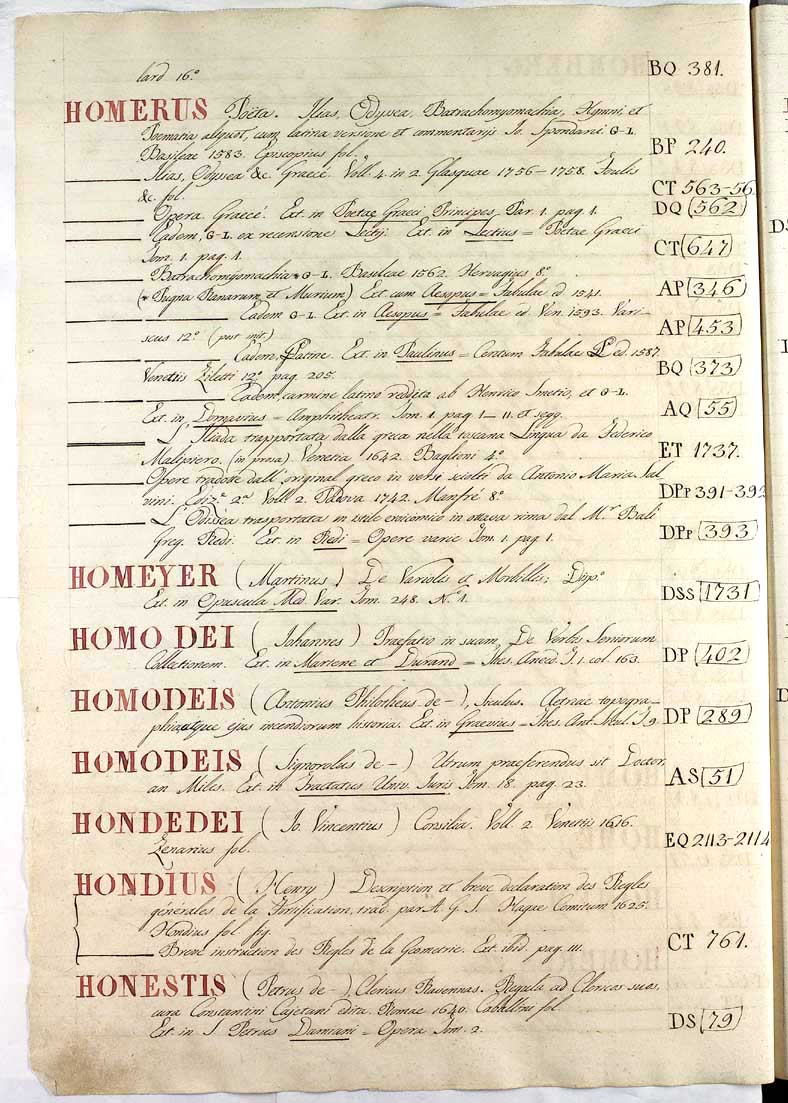 lard 16.° BQ 381.
HOMERUS Poëta. Ilias, Odyssea, Batrachomyomachia, Hymni, et
Poematia aliquot, cum latina versione et commentarijs Io. Spondani G-L.
Basileae 1583. Episcopius fol. BP 240.
Ilias, Odyssea &c. Graecè. Voll. 4. in 2. Glasguae 1756-1758. Foulis
&c. fol. CT 563-56
Opera. Graecè. Ext. in Poetae Graeci Principes Par. 1. pag. 1. DQ (562)
Eadem, G-L. ex recensione Lectij. Ext. in Lectius = Poetae Graeci
Tom. 1. pag. 1. CT (647)
Batrachomyomachia * G-L. Basileae 1562. Hervagius 8.°
(* Pugna Ranarum et Murium) Ext. cum Aesopus = Fabulae ed. 1541. AP (346)
Eadem G-L. Ext. in Aesopus = Fabulae ed. Ven. 1593. Vari-
scus 12.° (post init.) AP (453)
Eadem, Latine. Ext. in Paulinus = Centum Fabulae ed. 1587.
Venetiis Ziletti 12.° pag. 205. BQ (373)
Eadem, carmine latino reddita ab Henrico Smetio, et G-L.
Ext. in Dornavius = Amphitheatr. Tom. 1. pag. 1_11. et segg. AQ (55)
L'Iliada trasportata dalla greca nella toscana Lingua da Federico
Malipiero. (in prosa) Venetia 1642. Baglioni 4.° ET 1737.
Opere tradotte dall'original greco in versi sciolti da Antonio Maria Sal-
vini. Ediz.e 2.a Voll. 2. Padova 1742. Manfrè 8.° DPp 391-392
L'Odissea trasportata in stile eroicomico in ottava rima dal M.r Bali
Greg. Redi. Ext. in Redi = Opere varie Tom. 1. pag. 1. DPp (393)
HOMEYER (Martinus) De Variolis et Morbillis; Disp.°
Ext. in Opuscula Med. Var. Tom. 248. N.° 1. DSS (1731)
HOMO DEI (Johannes) Praefatio in suam, De Verbis Seniorum
Collationem. Ext. in Martene et Durand = Thes. Anecd. T. 1. col. 163. DP (402)
HOMODEIS (Antonius Philotheus de -), Siculus. Aetnae topogra-
phia atque ejus incendiorum historia. Ext. in Graevius = Thes. Ant. Sicul. T. 9. DP (289)
HOMODEIS (Signorolus de -) Utrum praeferendus sit Doctor,
an Miles. Ext. in Tractatus Univ. Iuris Tom. 18. pag. 23. AS (51)
HONDEDEI (Io. Vincentius) Consilia. Voll. 2. Venetiis 1616.
Zenarius fol. EQ 2113-2114
HONDIUS (Henry) Description et breve declaration des Regles
générales de la Fortification, trad. par A. G. S. Hagae Comitum 1625.
Hondius fol. fig.
Breve instruction des Regles de la Geometrie. Ext. ibid. pag. III. CT 761.
HONESTIS (Petrus de -), Clericus Ravennas. Regula ad Clericos suos
cura Constantini Cajetani edita. Romae 1640. Caballini fol.
Ext. in S. Petrus Damiani = Opera Tom. 2. DS (79)